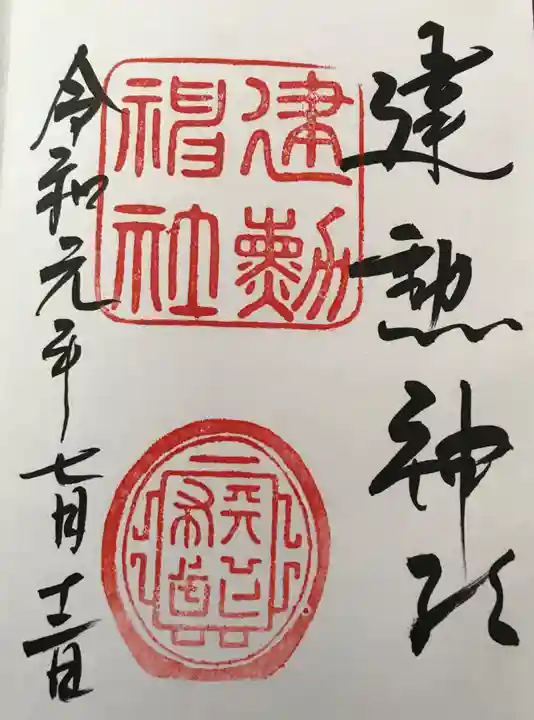 建勲神社
建勲
神社
令和元年七月十三日